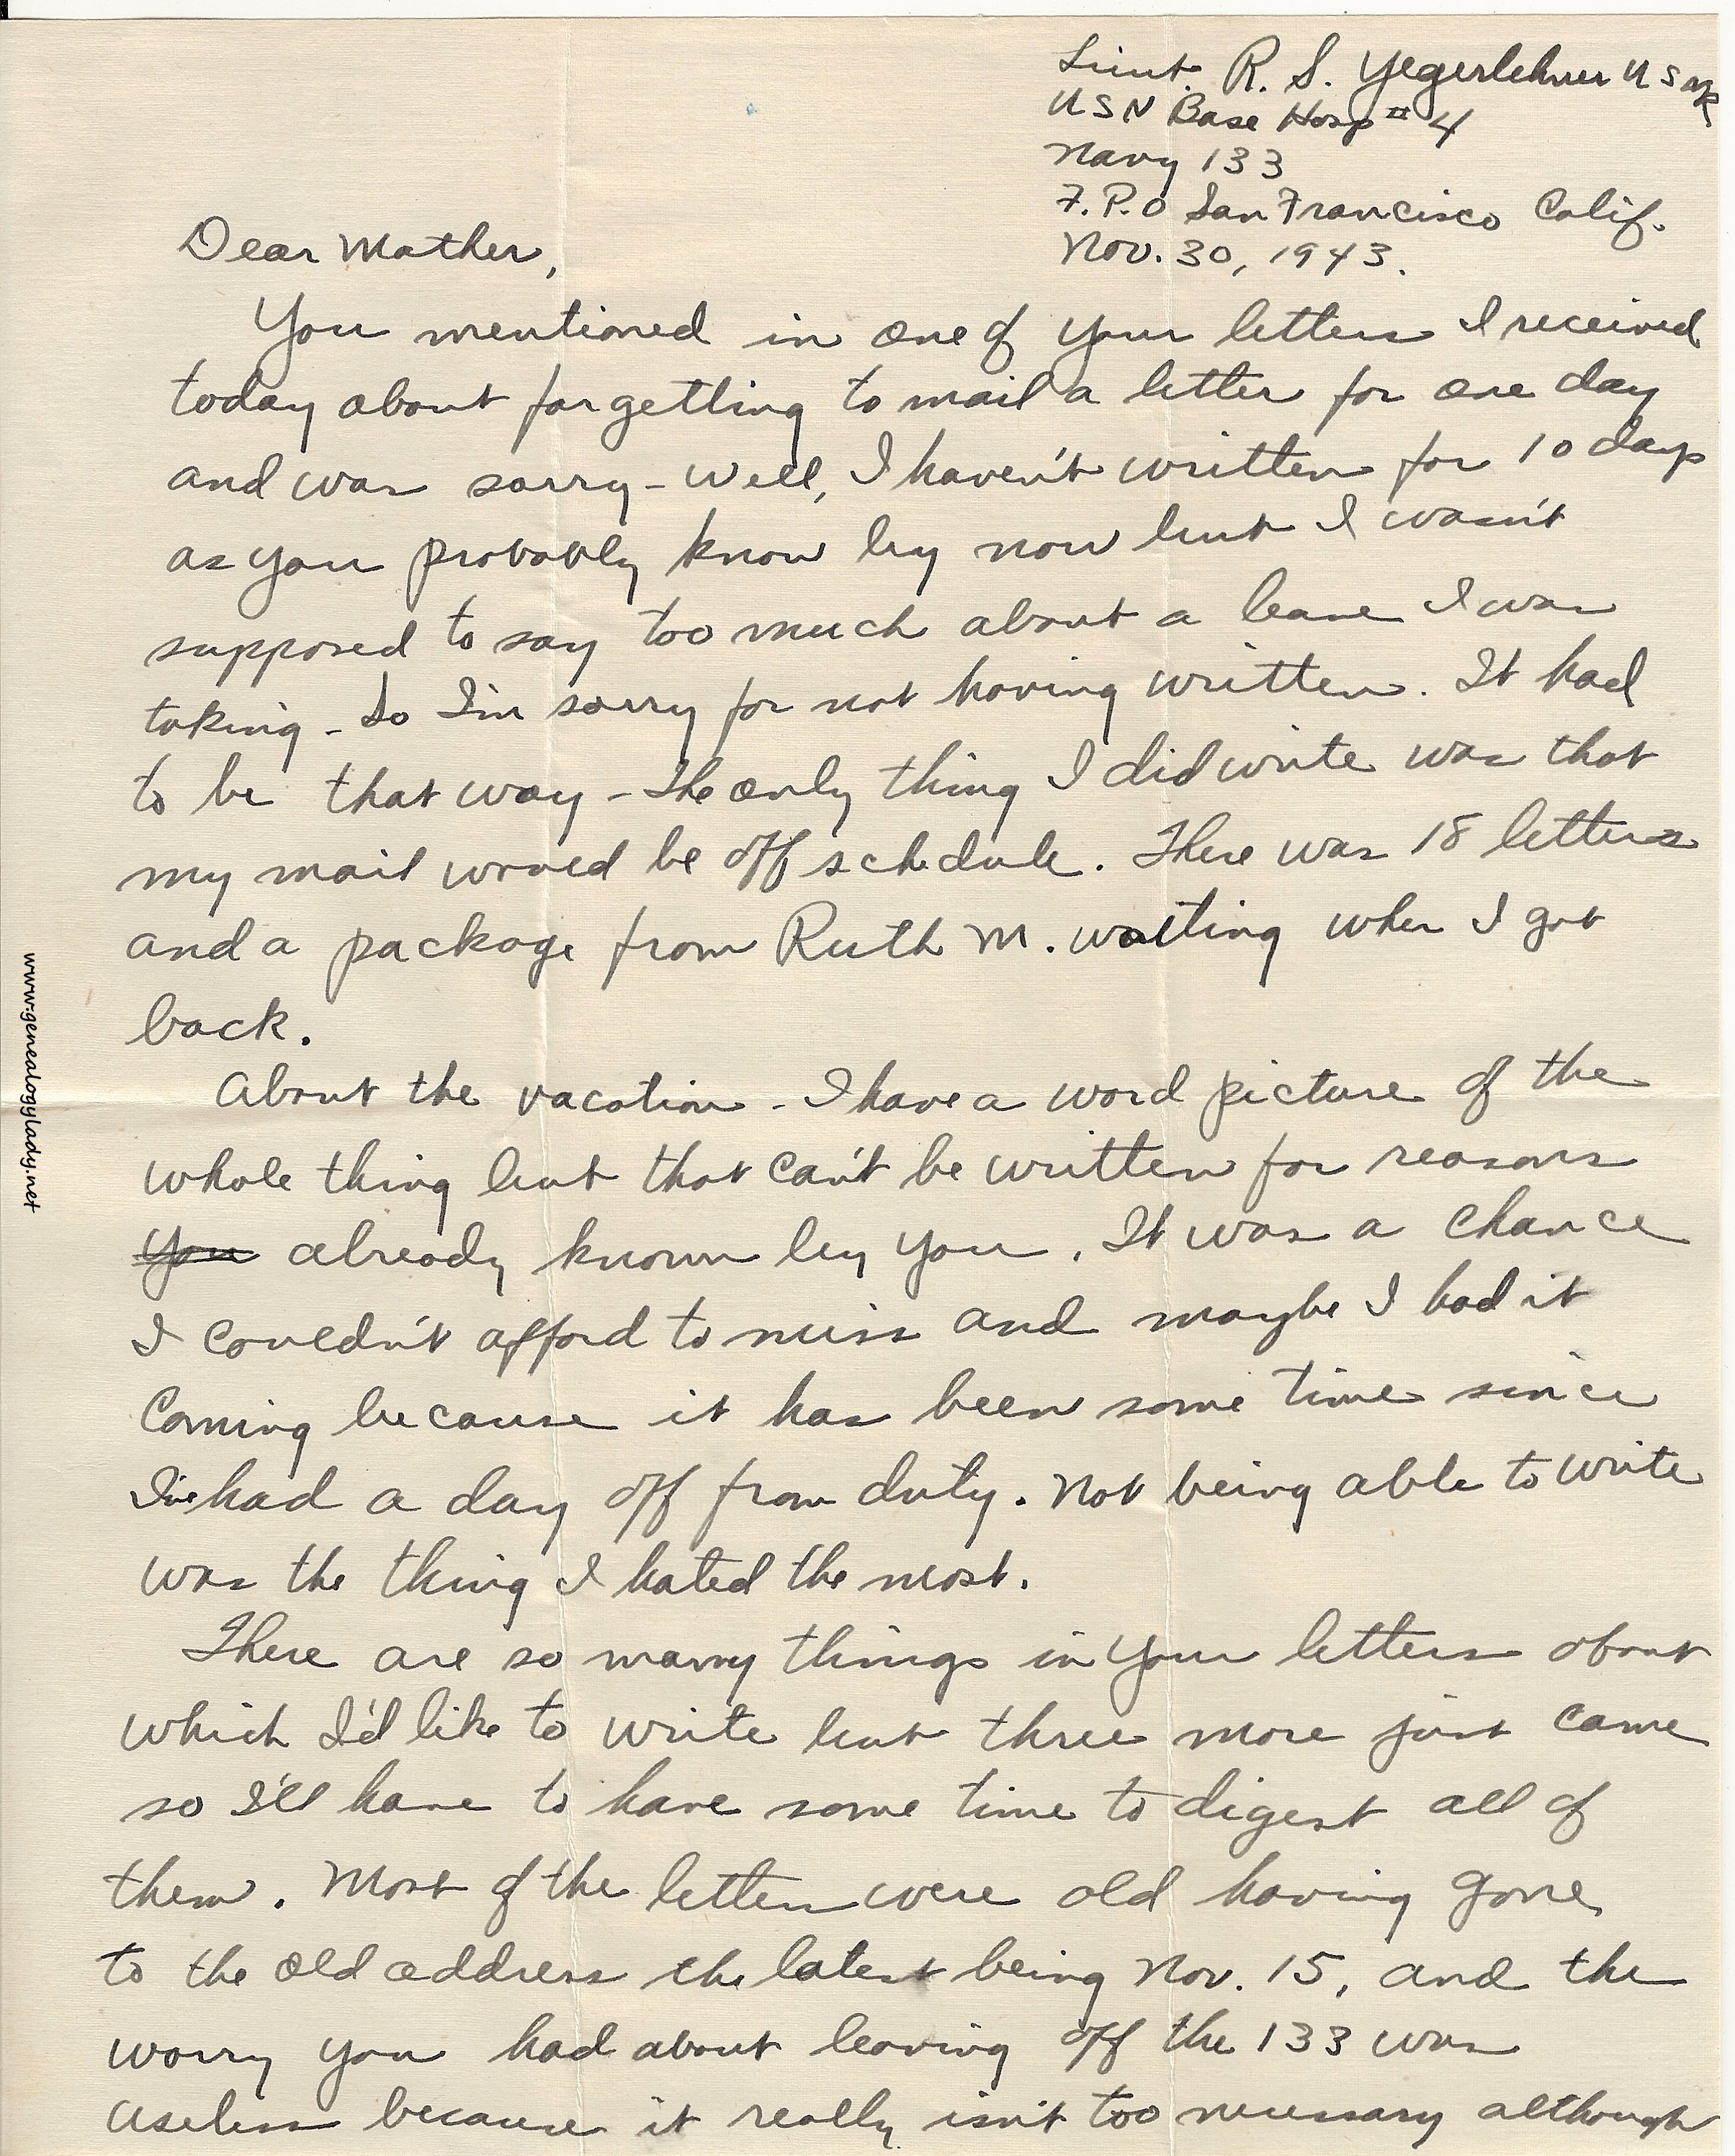 Lieut. R. S. Yegerlehner USNR
USN Base Hosp #4
Navy 133
F.P.O San Francisco Calif.
Nov. 30, 1943.
Dear Mother,
You mentioned in one of your letters I received
today about forgetting to mail a letter for one day
and was sorry - Well, I haven't written for 10 days
as you probably know by now but I wasn't
supposed to say too much about a leave I was
taking - So I'm sorry for not having written. It had
to be that way - The only thing I did write was that
my mail would be off schedule. There was 18 letters
and a package from Ruth M. waiting when I got
back.
About the vacation - I have a word picture of the
whole thing but that can't be written for reasons
You already known by you. It was a chance
I couldn't afford to miss and maybe I had it
coming because it has been some time since
I've had a day off from duty. Not being able to write
was the thing I hated the most.
There are so many things in your letters about
which I'd like to write but three more just came
so I'll have to have some time to digest all of
them. Most of the letters were old having gone
to the old address the latest being Nov. 15, and the
worry you had about leaving off the 133 was
useless because it really isn't too necessary although
www.genealogylady.net